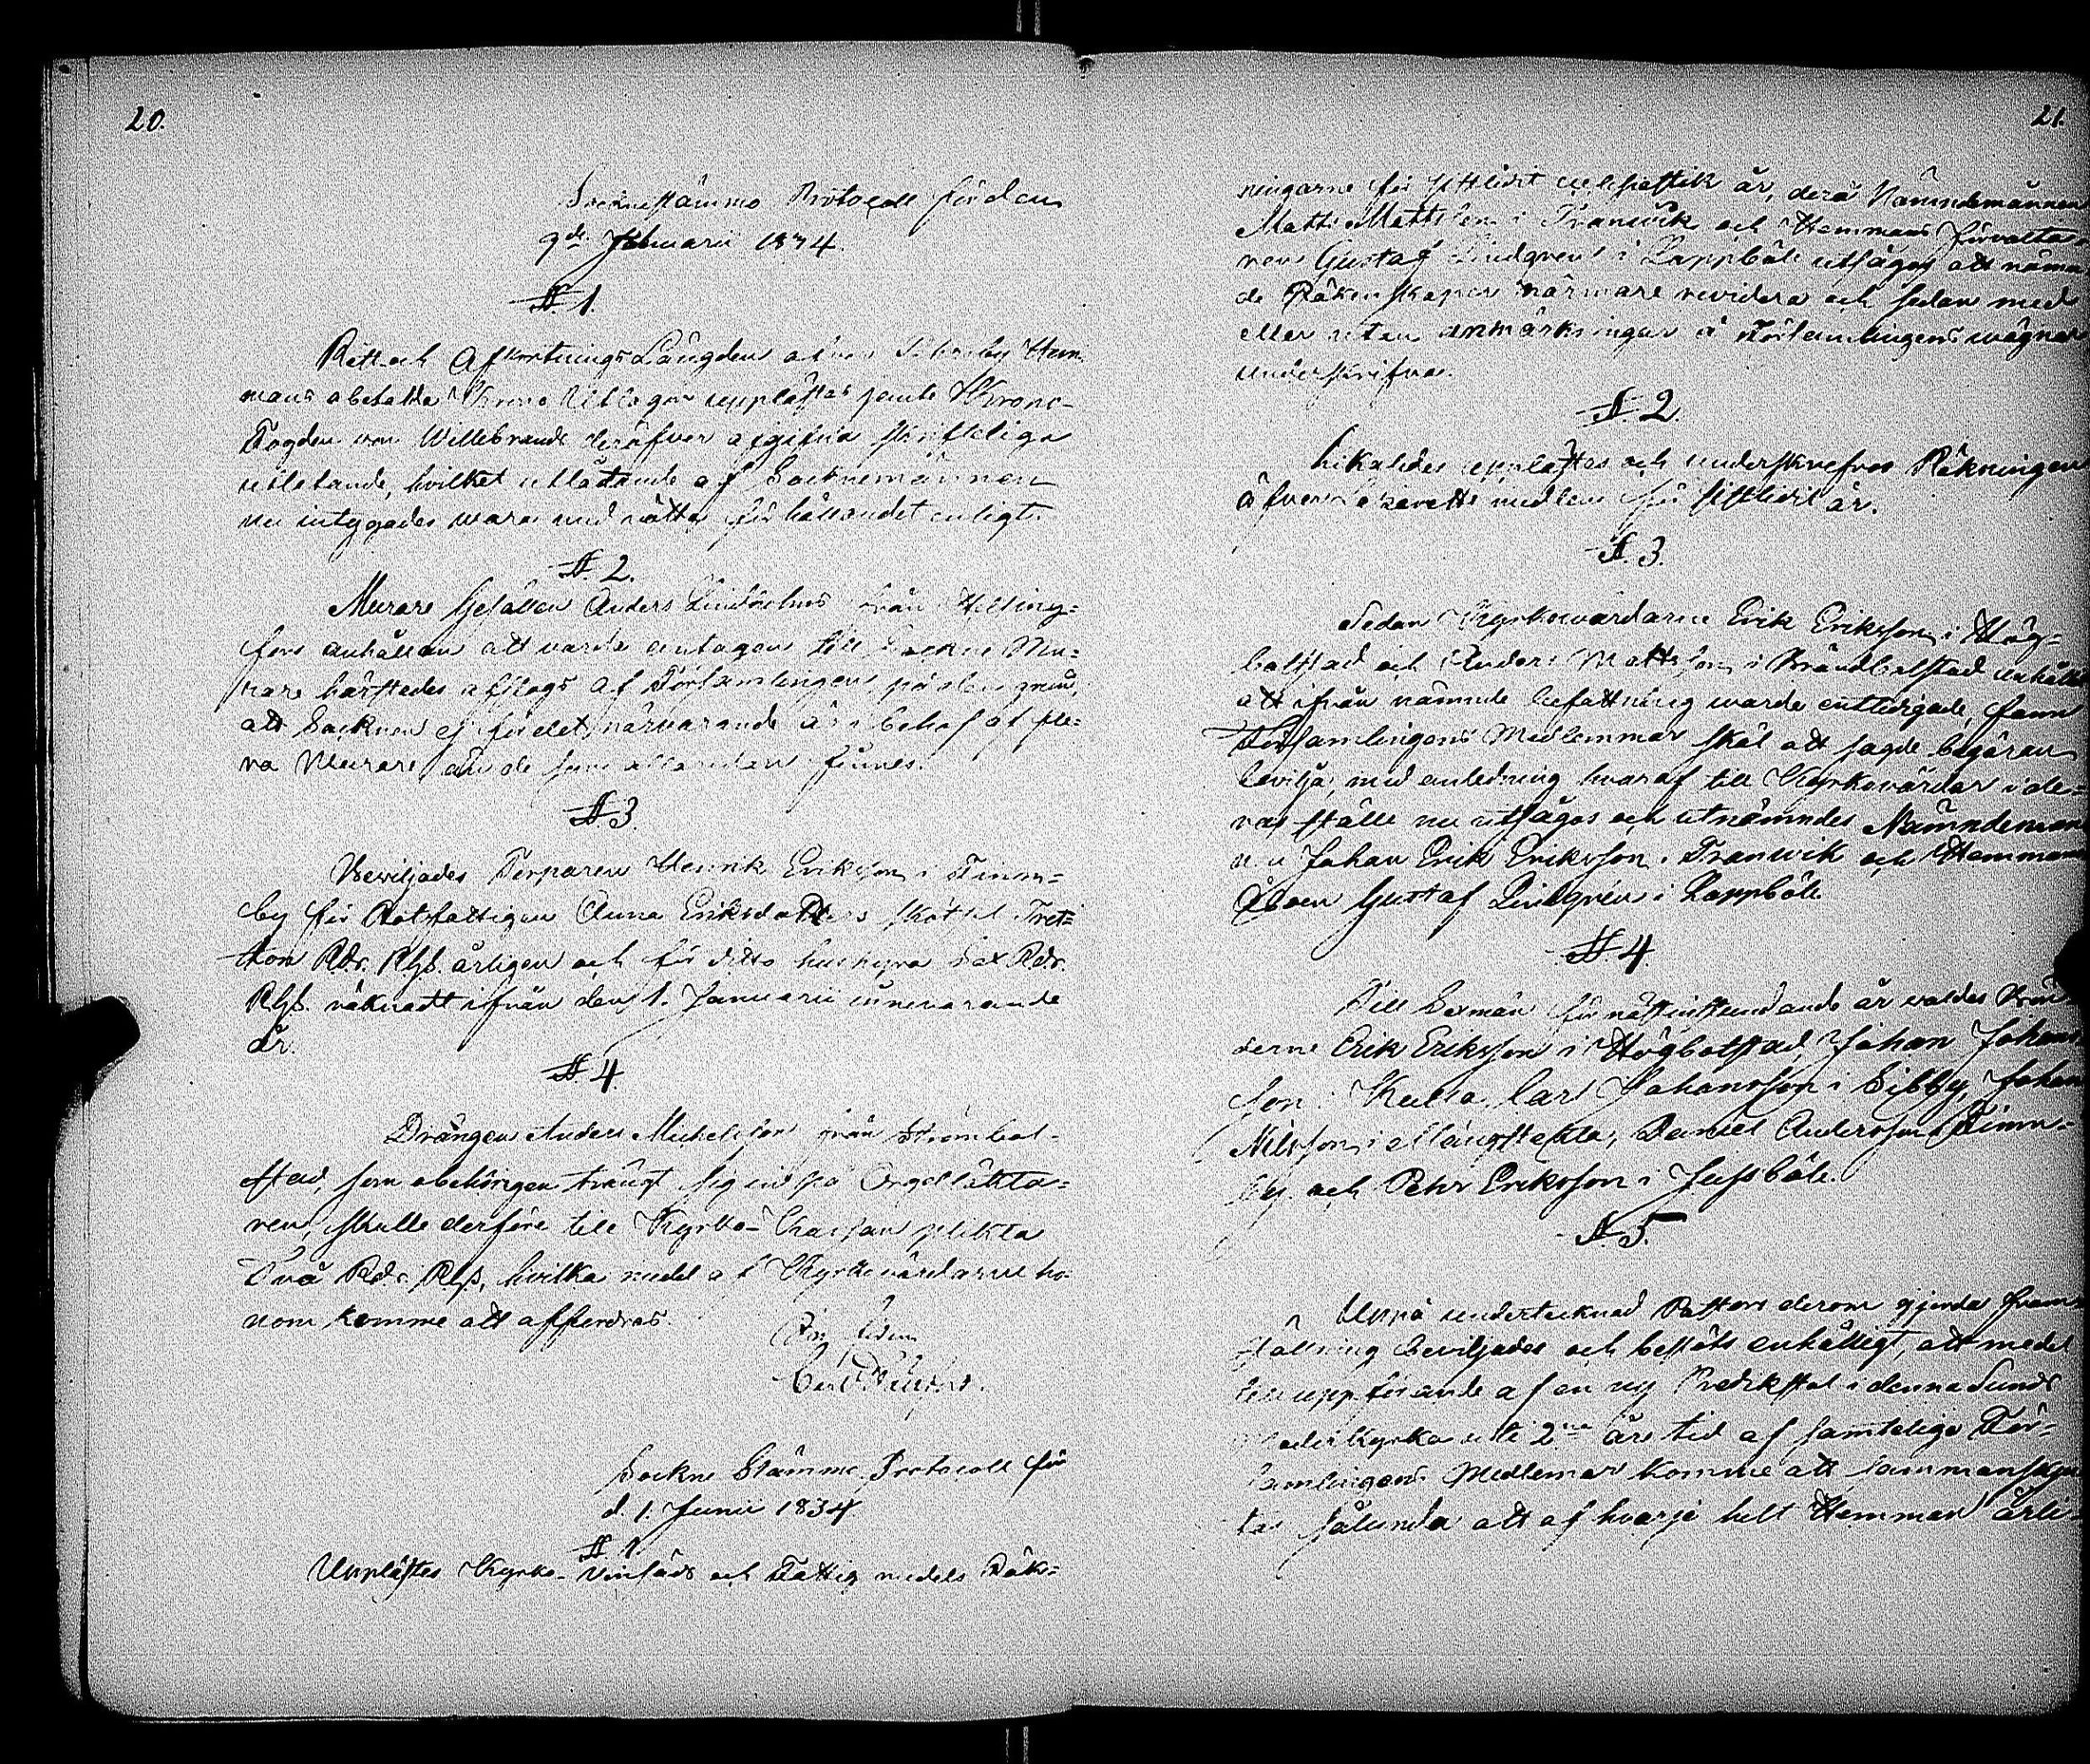 20.
Sockne stämmo Protocoll för den
9de Februarii 1834.
§. 1.
Rest och Afkortnings Längden öfver Hem-
mans obetalta Krono Utlagor upplästes jemte Krono-
Fogden von Willebrands deröfver afgifna skrifteliga
utlåtande, hvilket utlåtande af Socknemännen
nu intygades wara med rätta förhållandet enligt.
§. 2.
Murare Gesällen Anders Lindholms från Helsing-
fors anhållan att varda antagen till Sockne Mu-
rare härstedes afslogs af Församlingen, på den grund,
att Socknen ej för det närvarande är i behof af fle-
ra Murare, än de som allaredan finnes.
§. 3.
Beviljades Torparen Henrik Eriksson i Finn-
by för Rotefattigen Anna Eriksdotters skötsel Tret-
ton Rdr. Rgs. årligen och för dito hushyra Sex Rdr.
Rgs. räknadt ifrån den 1. Januarii innevarande
år.
§. 4.
Drängen Anders Michelsson från Strömbol-
stad, som obehörigen trängt sig in på Orgelläkta-
ren, skulle derföre till Kyrko-Cassan plikta
Två Rdr. Rgs, hvilka medel af Kyrkovärdarne ho-
nom komme att affordras.
In fidem
Sockne Stämmo Protocoll för
d. 1. Junii 1834
§. 1
Upplästes Kyrko- Vinsäds och Fattig medels Räk-
21.
ningarne för sistlidit år, derå Nämndemannen
Matts Mattsson i Tranwik och Hemmans förvalta-
ren Gustaf Lindgren i Lappböle utsågos att nämn-
de Räkenskaper närmare revidera och sedan med
eller utan anmärkningar å Församlingens wägnar
underskrifva.
§. 2.
Likaledes upplästes och underskrefvos Räkningen
öfver medlen för sistlidit år.
§. 3.
Sedan Kyrkowärdarne Erik Eriksson i Hög-
bolstad och Anders Mattsson i Brändbolstad anhållit
att ifrån nämnde befattning warda entledigade, fann
Församlingens Medlemmar skäl att sagde begäran
bevilja, med anledning hvaraf till Kyrkovärdar i de-
ras ställe nu utsågos och utnämndes Nämndeman
nen Johan Erik Eriksson i Tranwik och Hemmans
Åboen Gustaf Lindgren i Lappböle.
§. 4.
Till Sexmän för nästinstundande år waldes Bön-
derne Erik Eriksson i Högbolstad, Johan Johans-
son i Kulla, Carl Johansson i Sibby, Johan
Nilsson i Daniel Andersson i Finn-
by och Petter Eriksson i Jussböle.
§. 5.
Uppå undertecknad Pastors derom gjorda fram-
ställning beviljades och beslöts enhälligt, att medel
till uppförande af en ny Predikstol i denna Sunds
Moderkyrka uti 2ne års tid af samtelige För-
samlingens Medlemmar komme att sammanskju-
tas sålunda att af hvarje helt Hemman årli-